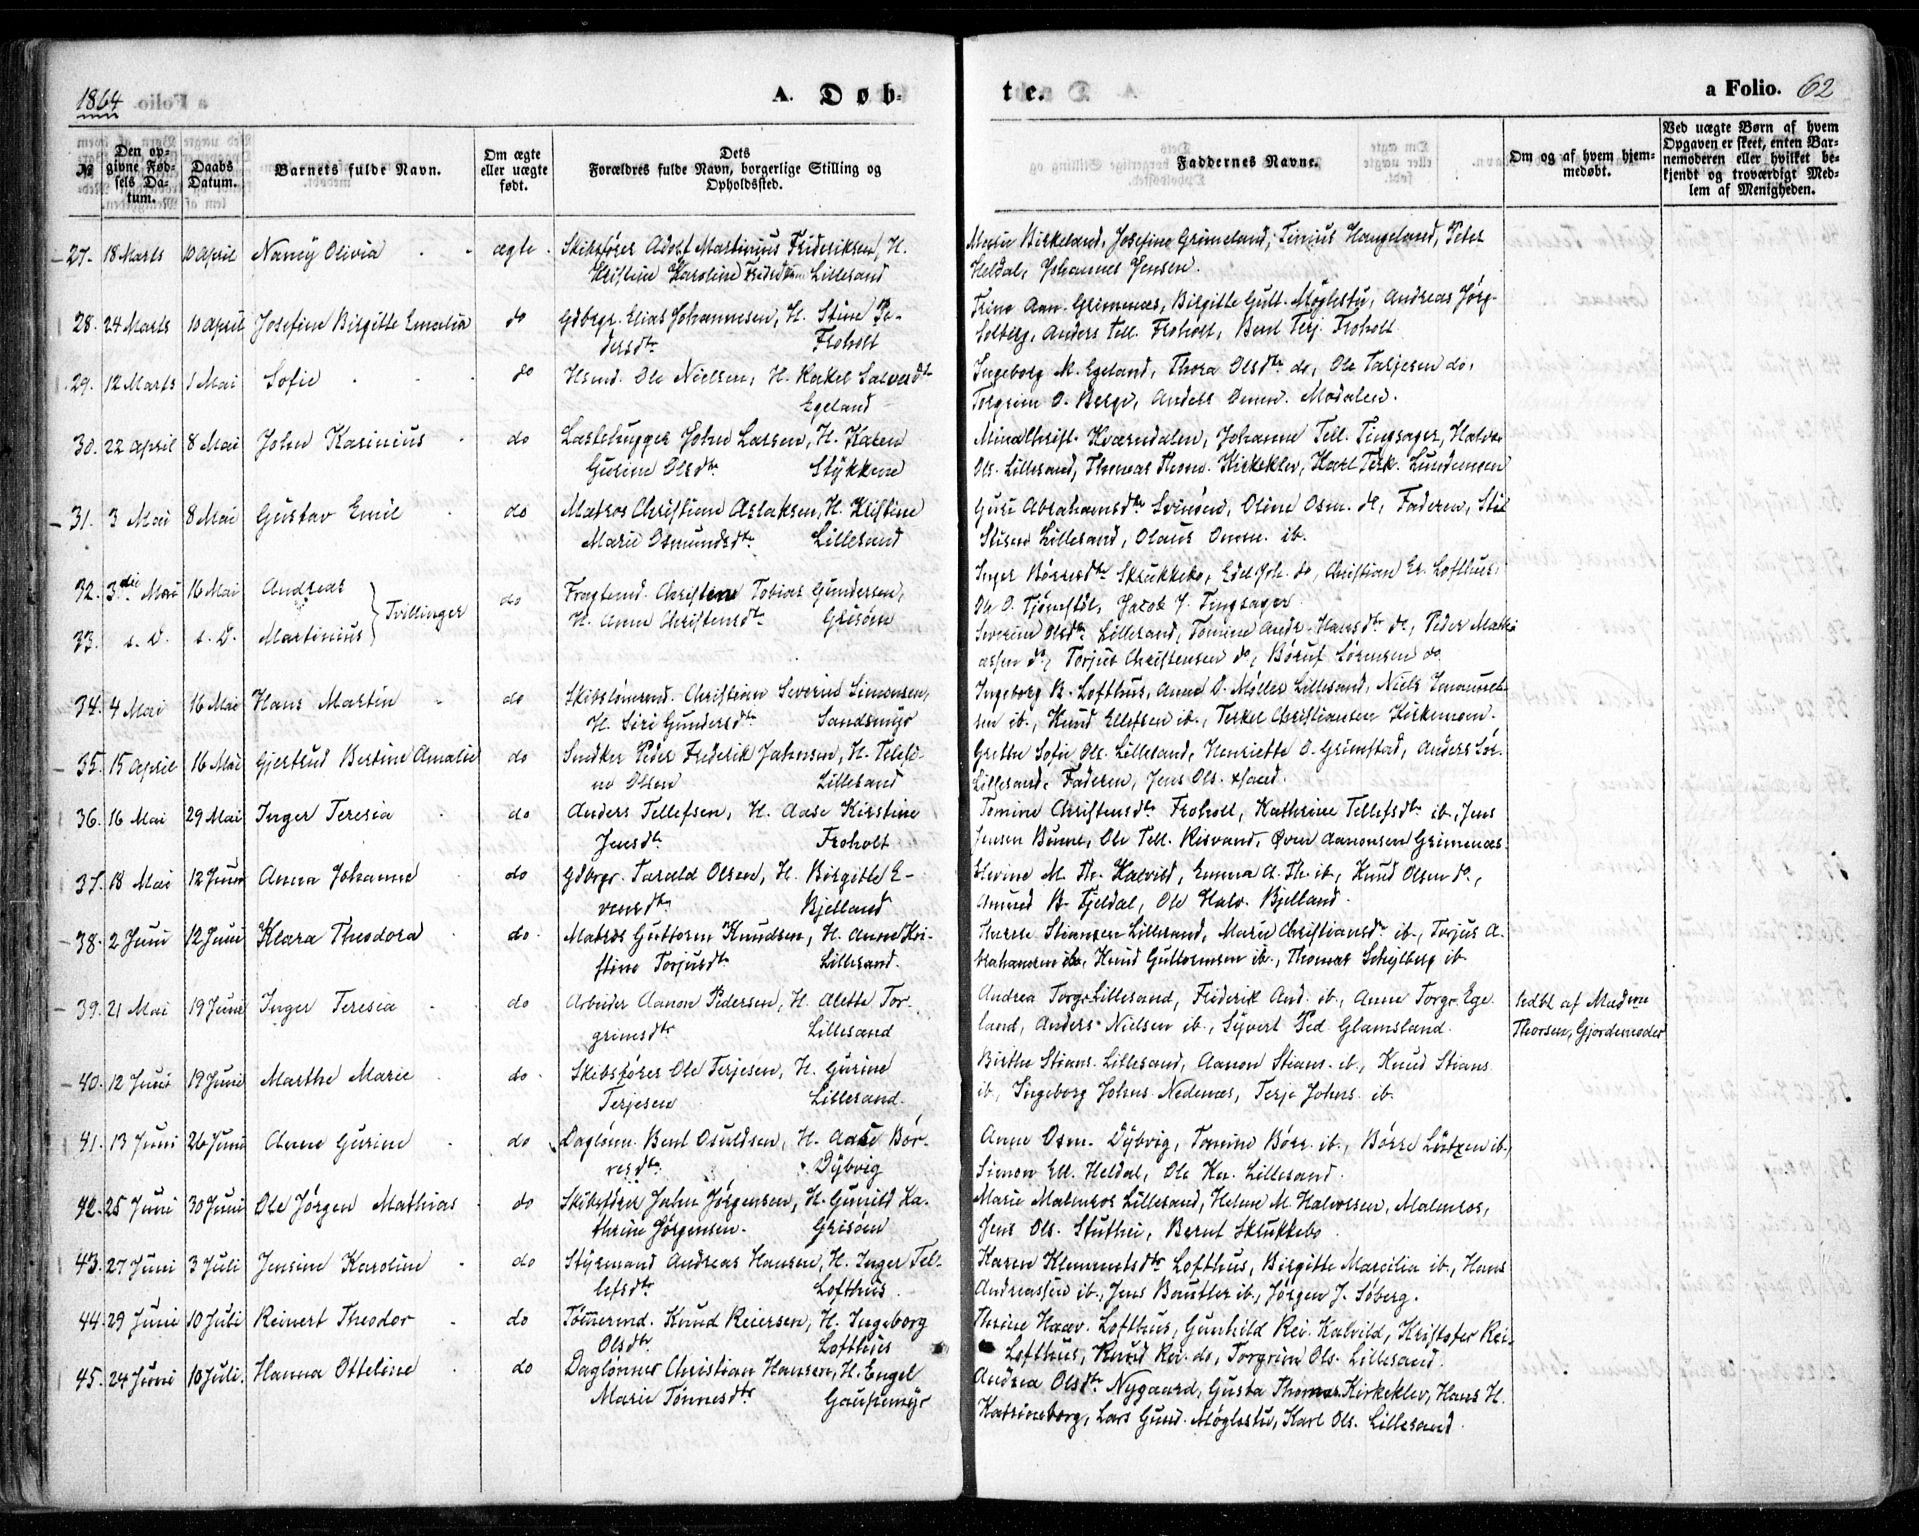 1864
A. Døb-
te.
a Folio. 62
№
Den opgivne Fødsels Datum.
Daabs Datum.
Barnets fulde Navn.
Om ægte eller uægte født.
Dets Forældres fulde Navn, borgerlige Stilling og Opholdssted.
Faddernes Navne.
Om og af hvem hjemmedøbt.
Ved uægte Børn af hvem Opgaven er skeet, enten Barnemoderen eller hvilket bekjendt og troværdigt Medlem af Menigheden.
27. 18 Marts 10 April Nancy Olivia ægte Skibsfører Adolf Martinius Frideriksen, H.
Kristine Karoline Lillesand
Birkeland, Josefine Grimeland, Tinius Hangeland, Peter
Heldal, Johannes Jensen.
28. 24 Marts 10 April Josefine Birgitte Emalia do Gdbrgr. Elias Johannesen, H. Stine Pe-
dersdtr Froholt
Trine Aan. Grimenæs, Birgitte Gutt. Møglestu, Andreas Jørg.
Solberg, Anders Tell. Froholt, Bent Terj. Froholt.
29. 12 Marts 1 Mai Sofie do Hsmd. Ole Nielsen, H. Rakel Salvesdtr
Egeland
Ingeborg M. Egeland, Thora Olsdtr do, Ole Tarjesen do,
Torgrim O. Berge, Anders Omm. Modalen.
30. 22 April 8 Mai John Karinius do Lastehugger John Larsen, H. Karen
Gurine Olsdtr Stykkene
Mina Christ. Kværndalen, Johanne Tell. Tingsager, Halvor
Ols. Lillesand, Thomas Thom. Kirkeklev, Karl Terk. Lundemoen
31. 3 Mai 8 Mai Gustav Emil do Matros Christian Aslaksen, H. Kristine
Marie Osmundsdtr. Lillesand
Guri Abrahamsdtr Sviniøen, Oline Osm. do, Faderen, Stil
Stisen Lillesand, Olaus Omm. ib.
32. 3die Mai 16 Mai Andreas } Tvillinger do Fragtemd. Christen Tobias Gundersen,
33. s. D. s. D. Martinius H. Anne Christensdtr Grisøen
Inger Børresdtr Skrukkebo, Edel Joh. do, Christian Er. Lofthus,
Ole O. Tjømstøl, Jacob J. Tingsager.
Severine Olsdtr Lillesand, Tomine Andr. Hansdtr do, Peder Mathi
assen do, Torjus Christensen do, Børuf Sørensen do
34. 4 Mai 16 Mai Hans Martin do Skibstømrmd. Christian Severin Simonsen,
H. Siri Gundersdtr Sandsmyr
Ingeborg B. Lofthus, Anne O. Møller Lillesand, Niels
sen ib., Knud Ellefsen ib., Terkel Christiansen Kirkemoen.
35. 15 April 16 Mai Gjertrud Bertine Amalie do Snedker Peder Frederik Jahnsen, H. Telef-
ne Olsen Lillesand
Grethe Sofie Ols. Lillesand, Henriette O. Grimstad, Anders Sør.
Lillesand, Faderen, Jens Ols.
36. 16 Mai 29 Mai Inger Teresia do Anders Tellefsen, H. Aase Kirstine
Jensdtr Froholt
Tomine Christensdtr Froholt, Kathrine Tellefsdtr ib, Jens
Jensen Bunne, Ole Tell. Risvand, Øven Aanonsen Grimenæs.
37. 18 Mai 12 Juni Anna Johanne do Gdbrgr. Tarald Olsen, H. Birgitte E-
vensdtr Bjelland
Elevine M. Th. Kalvild, Emma A. Th. ib, Knud Olsen do,
Amund B. Tjeldal, Ole Halv. Bjelland.
38. 2 Juni 12 Juni Klara Theodora do. Matros Guttorm Knudsen, H. Anne Kri-
stine Torjusdtr Lillesand.
Therese Stiansen Lillesand, Marie Christiansdtr ib., Torjus A-
brahamsen ib, Knud Guttormsen ib., Thomas Schylberg ib
39. 21 Mai 19 Juni Inger Teresia do Arbeider Aanon Pedersen, H. Alette Tor-
grimsdtr Lillesand
Andrea Torgr. Lillesand, Fiderik And. ib, Anne Torgr. Ege
land, Anders Nielsen ib, Syvert Ped. Glamsland.
hdbt af Madme
Thorsen, Gjordemoder
40. 12 Juni 19 Juni Marthe Marie do. Skibsfører Ole Terjesen, H. Gurine
Terjesen Lillesand.
Birthe Stians. Lillesand, Aanon Stians. ib, Knud Stians
ib, Ingeborg Johns. Nedenæs, Terje Johns. ib.
41. 13 Juni 26 Juni Anne Gurine do Daglønn. Bent Osuldsen, H. Aase Bør-
resdtr Dybvig
Anne Osm. Dybvig, Tomine Børr. ib., Børre Lütz en ib,
Simon Ell. Heldal, Ole Kn. Lillesand.
42. 25 Juni 30 Juni Ole Jørgen Mathias do Skibsfører Jahn Jørgensen, H. Gunild Ka-
thrine Jørgensen. Grisøen
Marie Malmros Lillesand, Helene M. Halvorsen, Malmros,
Jens Ols. Stuthei, Bernt Skrukkebo
43. 27 Juni 3 Juli Jensine Karoline do Styrmand Andreas Hansen, H. Inger Tel-
lefsdtr Lofthus.
Karen Klemmetsdtr Lofthus, Birgitte Marcilia ib., Hans
Andreassen ib., Jens Bautler ib., Jørgen J. Søberg.
44. 29 Juni 10 Juli Reinert Theodor do Tømmermd. Knud Reiersen, H. Ingeborg
Olsdtr Lofthus
Thrine Haav. Lofthus, Gunhild Rei. Kalvild, Kristofer Rei-
Lofthus, Knud Rei. do, Torgrim Ols. Lillesand.
45. 24 Juni 10 Juli. Hanna Otteline do Daglønner Christian Hansen, H. Engel
Marie Tønnesdtr Gaupemyr
Andrea Olsdtr Nygaard, Gusta Thomas. Kirkeklev, Hans H.
Katrineborg, Lars Gund. Møglestu, Karl Ols. Lillesand.